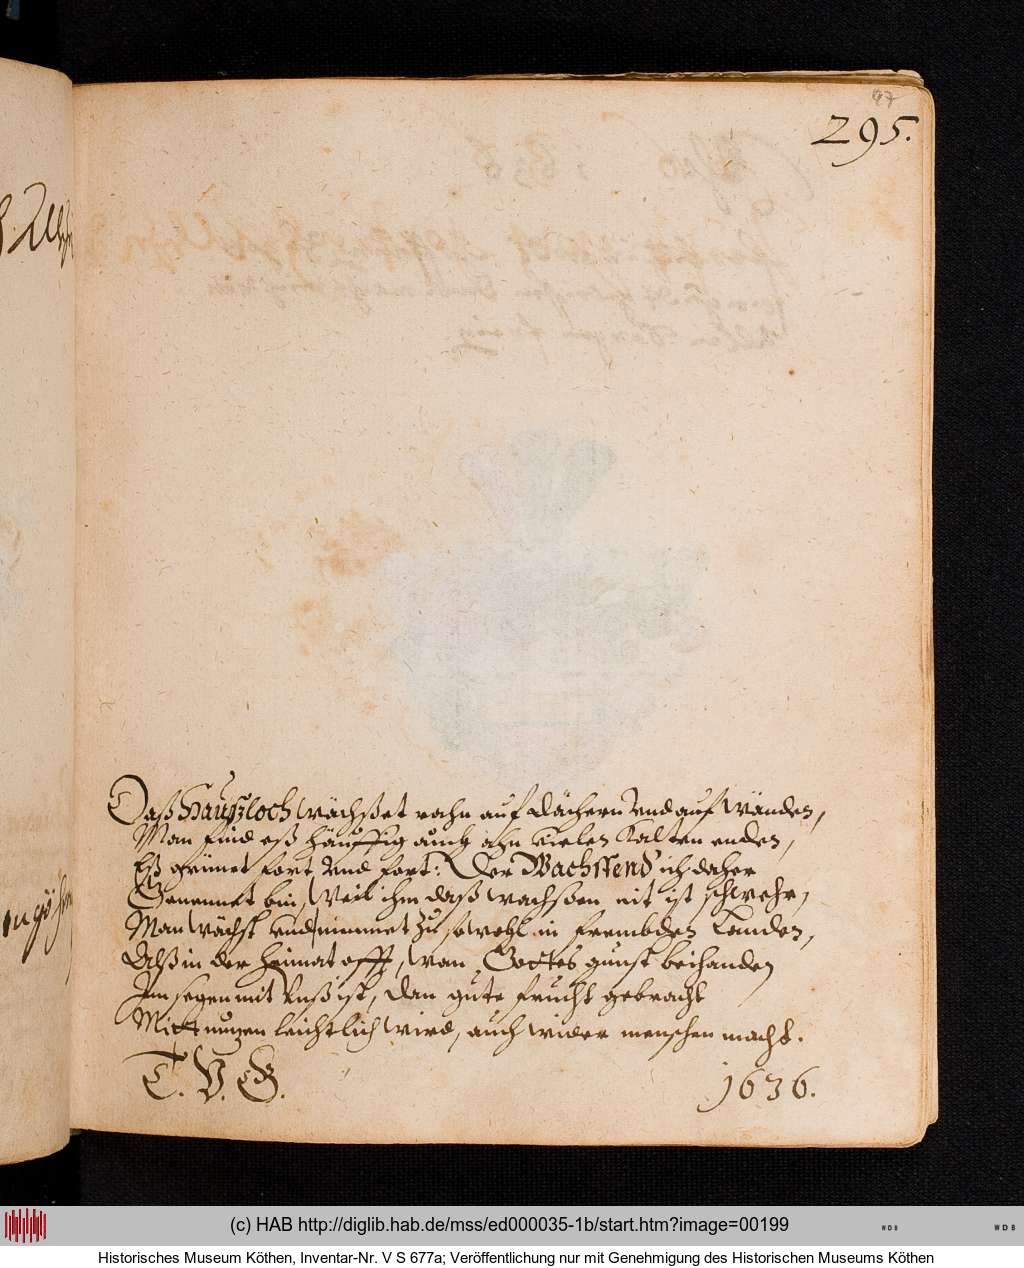 97
295.
Daß Haußloch wächßet rahn auf dächern vnd auf wänden,
Man find eß häuffig auch ahn vielen kalten enden,
Eß grünet fort vnd fort: Der Wachssend' ich daher
Genennet bin, Weil ihm daß wachsßen nit ist schwehr,
Man wächst vnd nimmet zu so wohl in frembden Landen,
Alß in der heimat offt, wan Gottes gunst beihanden
Im segen mit vnß ist, dan gute frucht gebracht
Mitt nutzen leichtlich wird, auch wider menschen macht.
T. V. G. 1636.
(c) HAB http://diglib.hab.de/mss/ed000035-1b/start.htm?image=00199
WDB
WDB
Historisches Museum Köthen, Inventar-Nr. V S 677a; Veröffentlichung nur mit Genehmigung des Historischen Museums Köthen